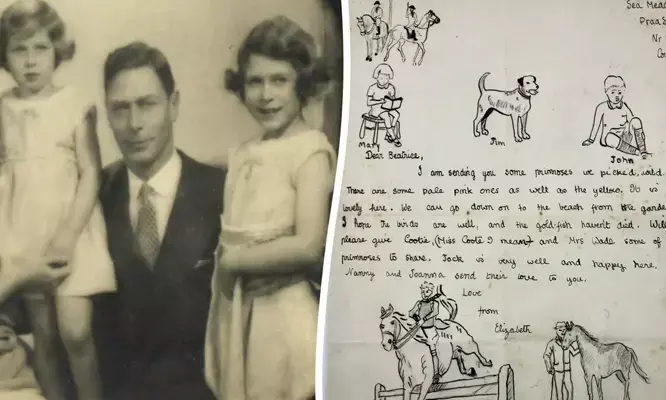 Sea Mead
Praa S
Nr
Co
Mary
Jim
John
Dear Beatrice,
I am sending you some primroses we picked, wild.
There are some pale pink ones as well as the yellow. It is
lovely here. We can go down on to the beach from the garde
I hope the birds are well, and the gold-fish haven't died. Will
please give Cootie, (Miss Coote I mean) and Mrs Wade some of
primroses to share. Jack is very well and happy here.
Nanny and Joanna send their love to you.
Love
from
Elizabeth